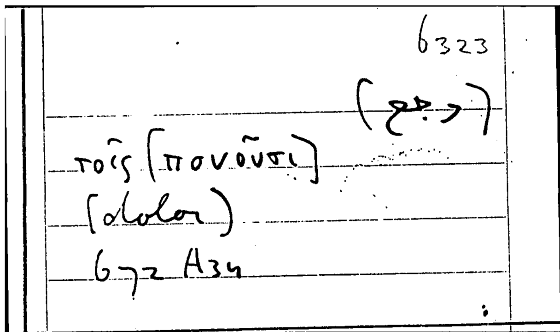 6323
τοῖς [πονοῦσι]
(dolor)
672 A34